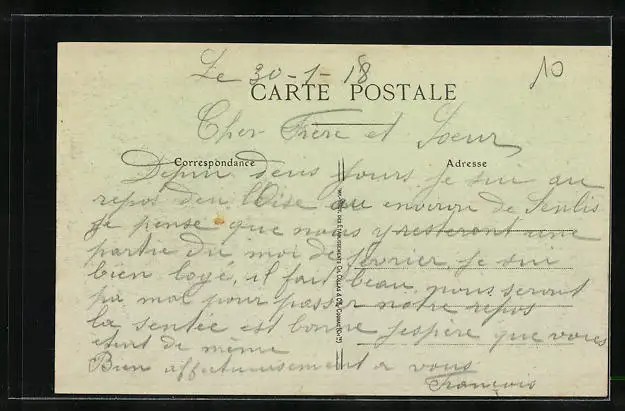 Le 30-1-18
10
CARTE POSTALE
Cher Frère et Soeur
Correspondance
Adresse
Depui deus jours je sui au
repos den l'Oise au environ de Senlis
je pense que nous y resteront une
partie du moi de fevrier, je sui
bien logé, il fait beau, nous seront
pa mal pour passer notre repos
la sentée est bonne j'espère que vous
etent de même
Bien affectueusement a vous
François